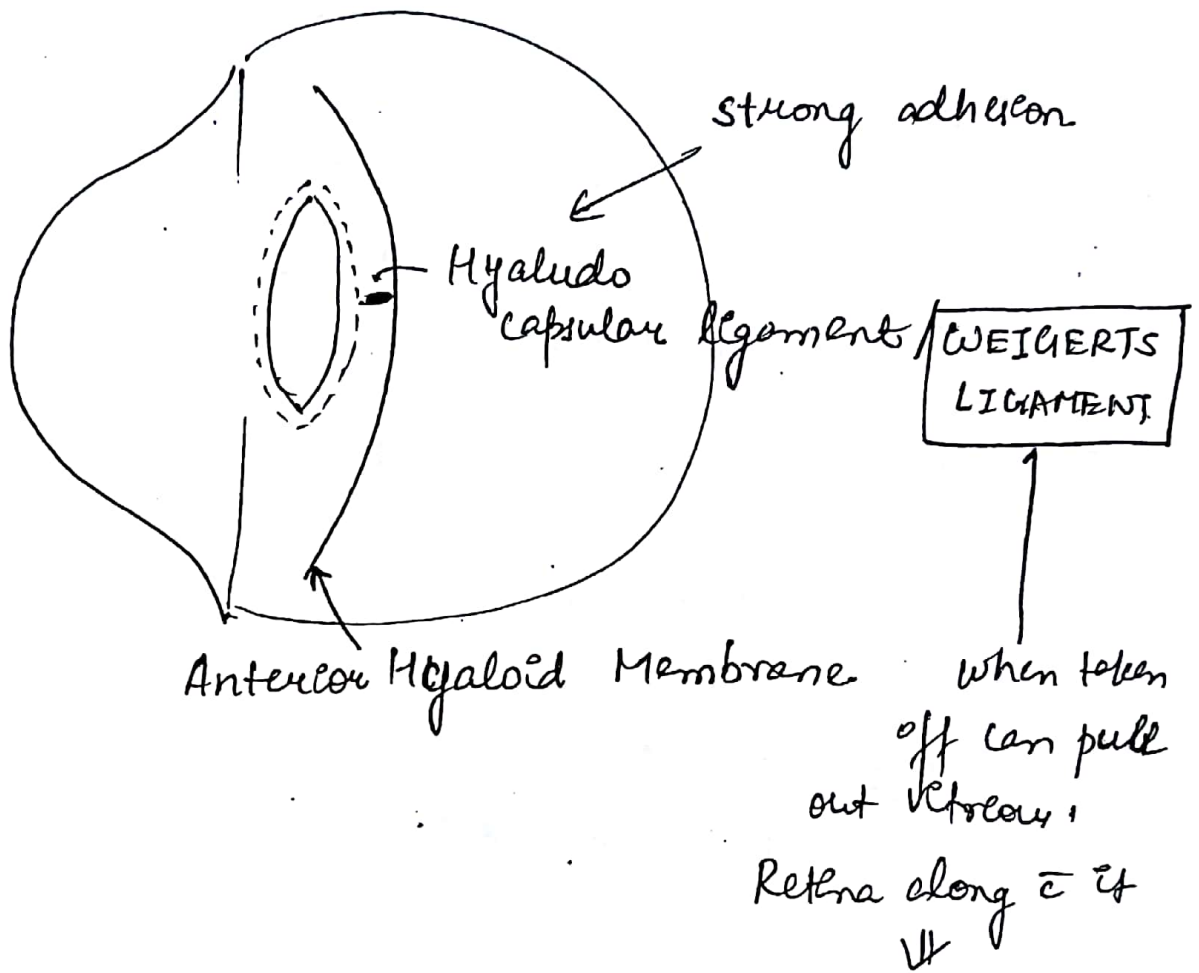 strong adhesion
Hyaludo
capsular ligament /
WEIGERTS
LIGAMENT
Anterior Hyaloid Membrane
when taken
off can pull
out vitreous,
Retina along c̄ it